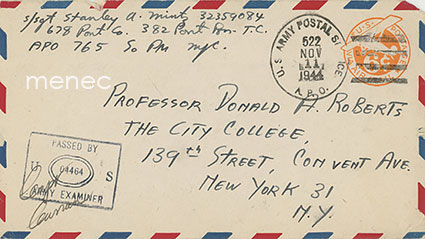 s/sgt Stanley A. Mintz 32359084
678 Port Co. 382 Port Bn. T.C.
APO 765 So PM NYC.
menec
U.S. ARMY POSTAL SERVICE
522
NOV
11
1944
A.P.O.
PROFESSOR DONALD A. ROBERTS
THE CITY COLLEGE,
139th STREET, CONVENT AVE.
NEW YORK 31
N.Y.
PASSED BY
U S
04464
ARMY EXAMINER